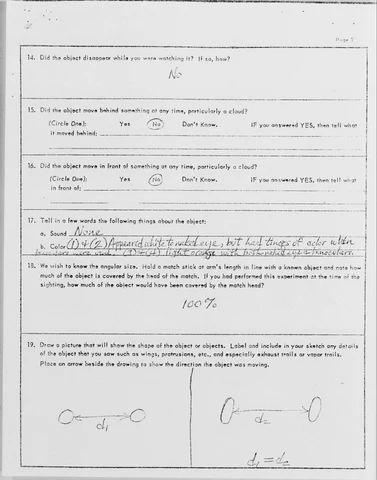 Page 5
14. Did the object disappear while you were watching it? If so, how?
No
15. Did the object move behind something at any time, particularly a cloud?
(Circle One): Yes No Don't Know. IF you answered YES, then tell what
it moved behind:
16. Did the object move in front of something at any time, particularly a cloud?
(Circle One): Yes No Don't Know. IF you answered YES, then tell what
in front of:
17. Tell in a few words the following things about the object:
a. Sound None
b. Color (1) + (2) Appeared white to naked eye, but had tinges of color when
binoculars were used. (3) + (4) light orange with both naked eye & binoculars.
18. We wish to know the angular size. Hold a match stick at arm's length in line with a known object and note how
much of the object is covered by the head of the match. If you had performed this experiment at the time of the
sighting, how much of the object would have been covered by the match head?
100%
19. Draw a picture that will show the shape of the object or objects. Label and include in your sketch any details
of the object that you saw such as wings, protrusions, etc., and especially exhaust trails or vapor trails.
Place an arrow beside the drawing to show the direction the object was moving.
d1
d2
d1 = d2